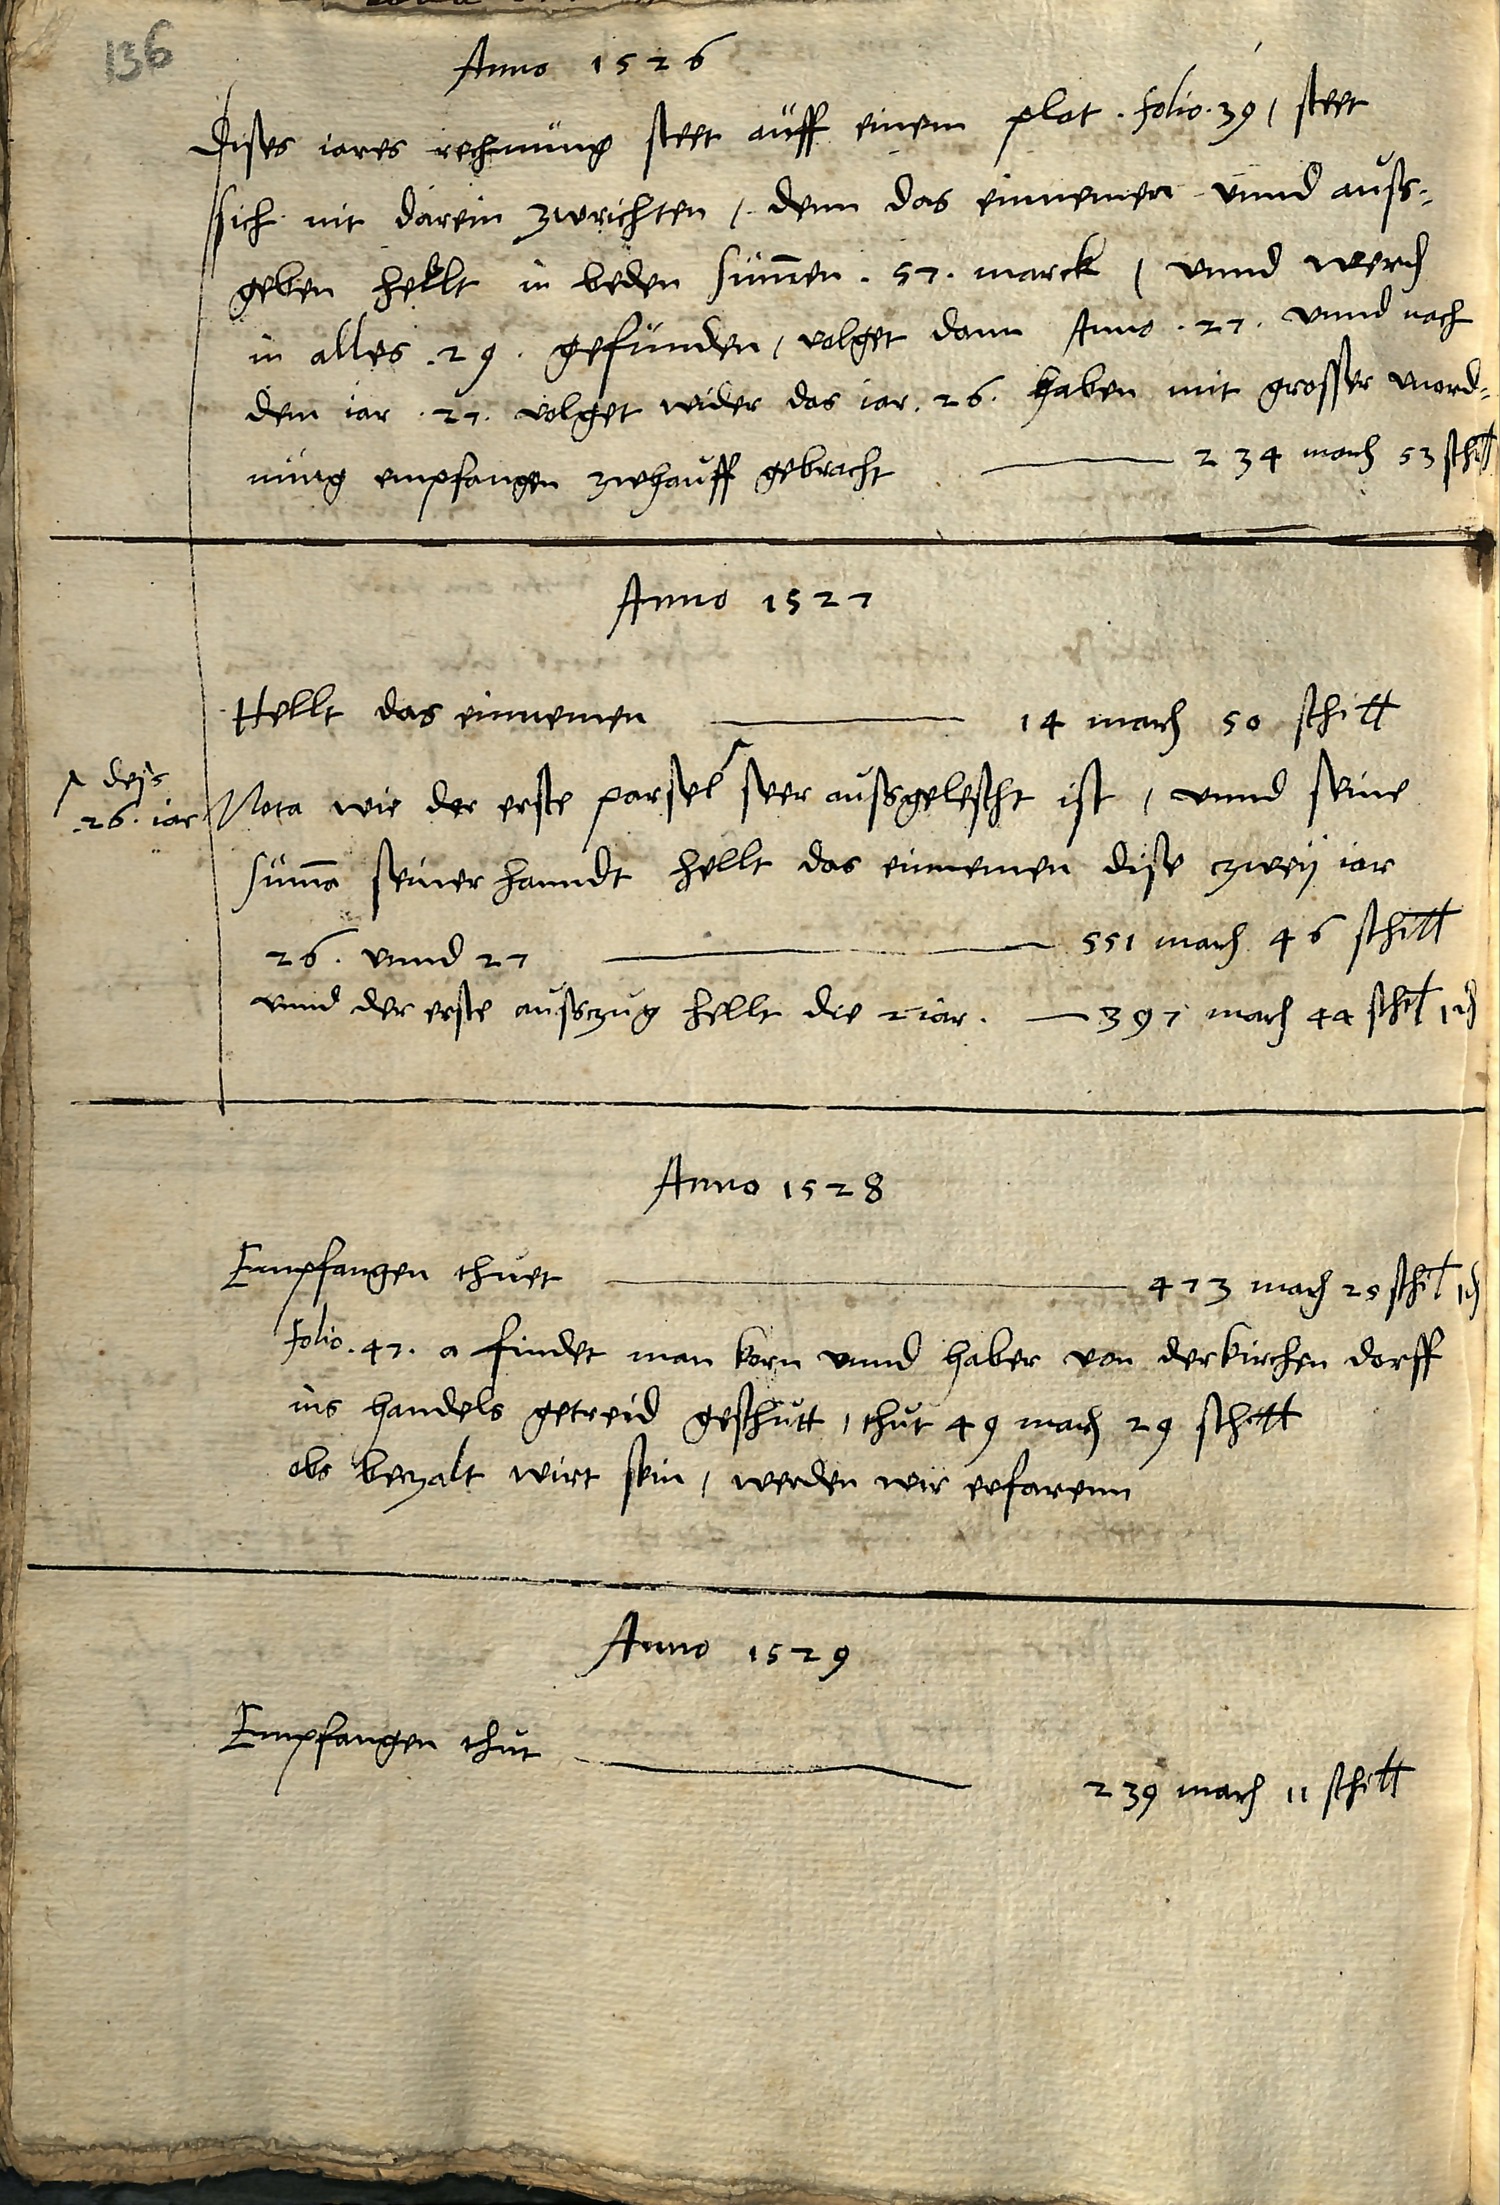 136
Anno 1526
Dises iares rechnung steet auff einem plat . folio . 39 / steet
sich nit darein zwrichten / denn das einnemen vnnd auss-
geben hellt in beden summen . 57 . marck / vnnd werd
in alles . 29 . gefunden / volget dann Anno . 27 . vnnd nach
dem iar . 27 . volget wider das iar . 26 . haben mit grosser vnord-
nung empfangen zwhauff gebracht 234 march 53 schill
Anno 1527
Hellt das einnemen 14 march 50 schill
dess
.26. iar
Nota wie der erste parsel seer aussgelescht ist / vnnd seine
summa seiner hanndt hellt das einnemen dise zweij iar
26 . vnnd 27 551 march 46 schill
vnnd der erste ausszug hellt die 2 iar . 397 march 44 schil 1 d
Anno 1528
Empfangen thuet 473 march 25 schil 1 d
folio . 47 . a findet man korn vnnd haber von der kirchen dorff
ins handels getreid geschutt / thut 49 march 29 schill
obs betzalt wirt sein / werden wir erfarenn
Anno 1529
Empfangen thut 239 march 11 schill